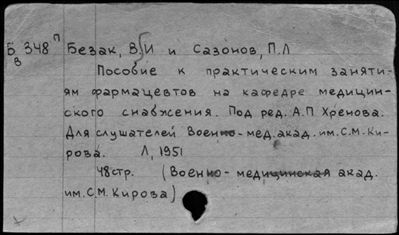 Б 348 п Безак, В И и Сазонов, П.Л
в
Пособие к практическим заняти-
ям фармацевтов на кафедре медицин-
ского снабжения. Под ред. А.П Хренова.
Для слушателей Военно-мед. акад. им. С.М. Ки-
рова. Л, 1951
48стр. (Военно-медицинская акад.
им. С.М. Кирова)